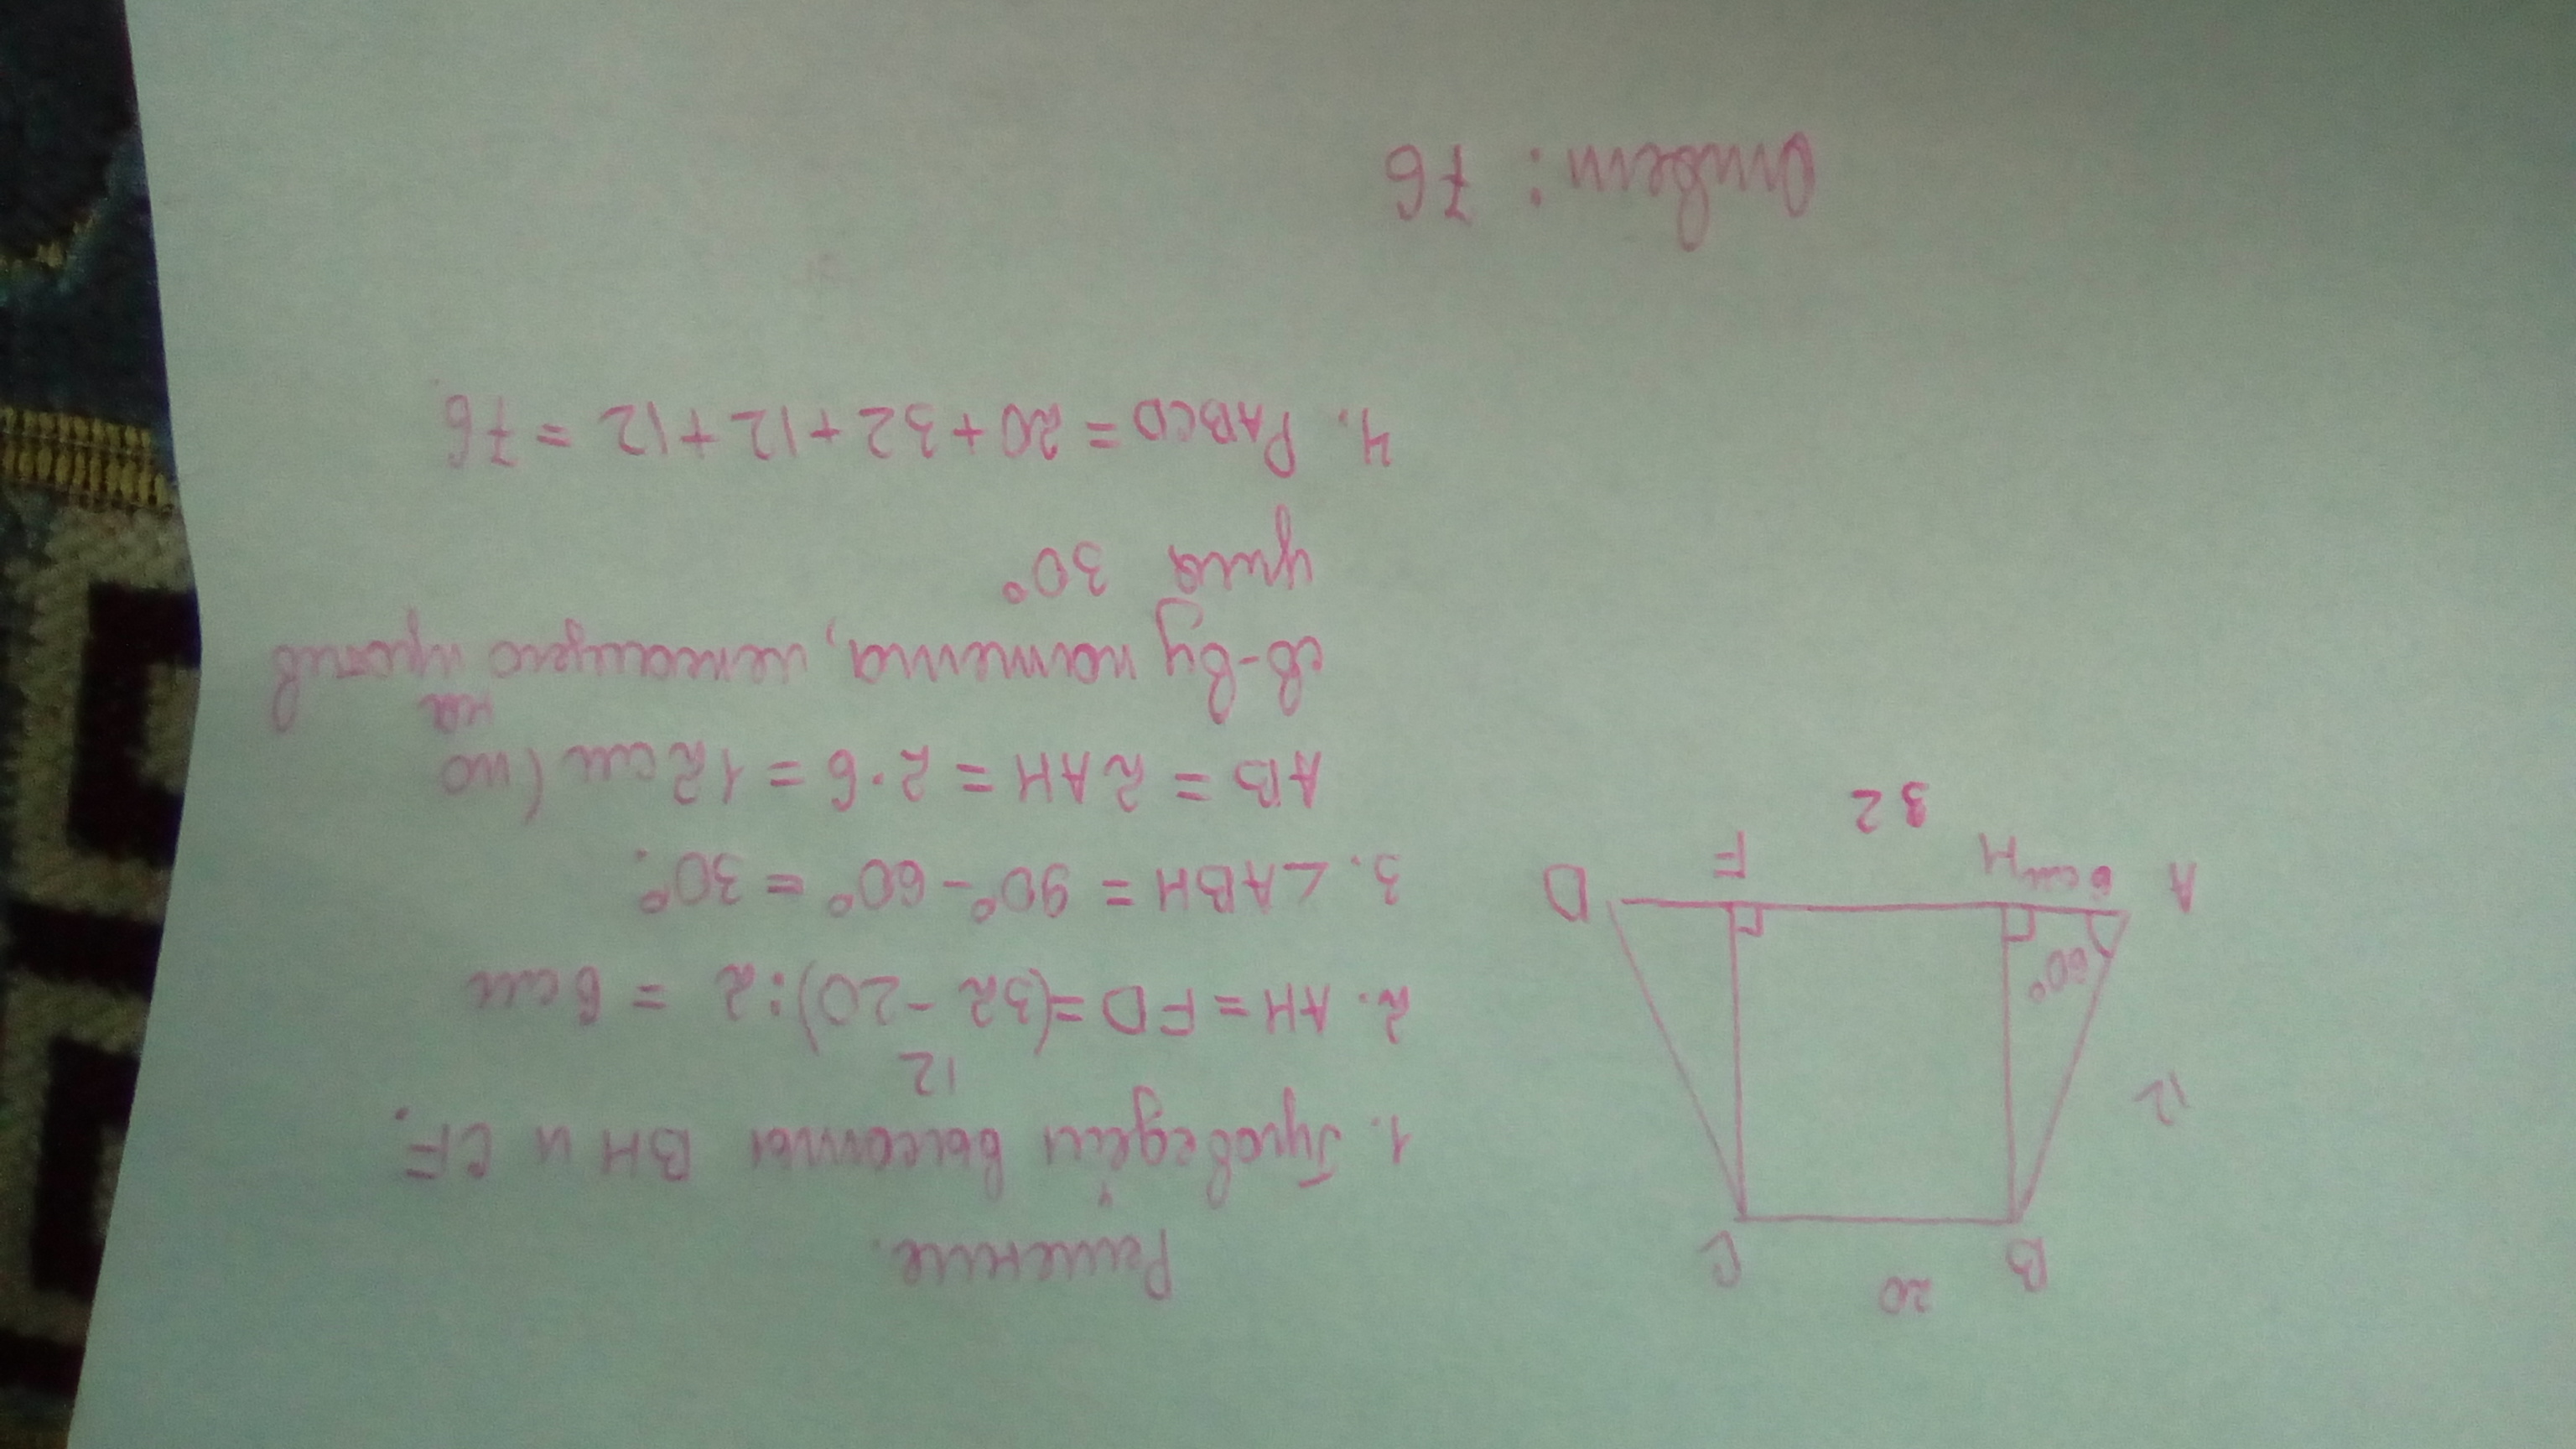 B 20 C
12
60°
A 6 см H F D
32
Решение.
1. Проведём высоты BH и CF.
12
2. AH = FD = (32 - 20) : 2 = 6 см
3. ∠ABH = 90° - 60° = 30°.
AB = 2AH = 2·6 = 12 см (по
св-ву катета, лежащего против
угла 30°
4. PABCD = 20 + 32 + 12 + 12 = 76
Ответ: 76